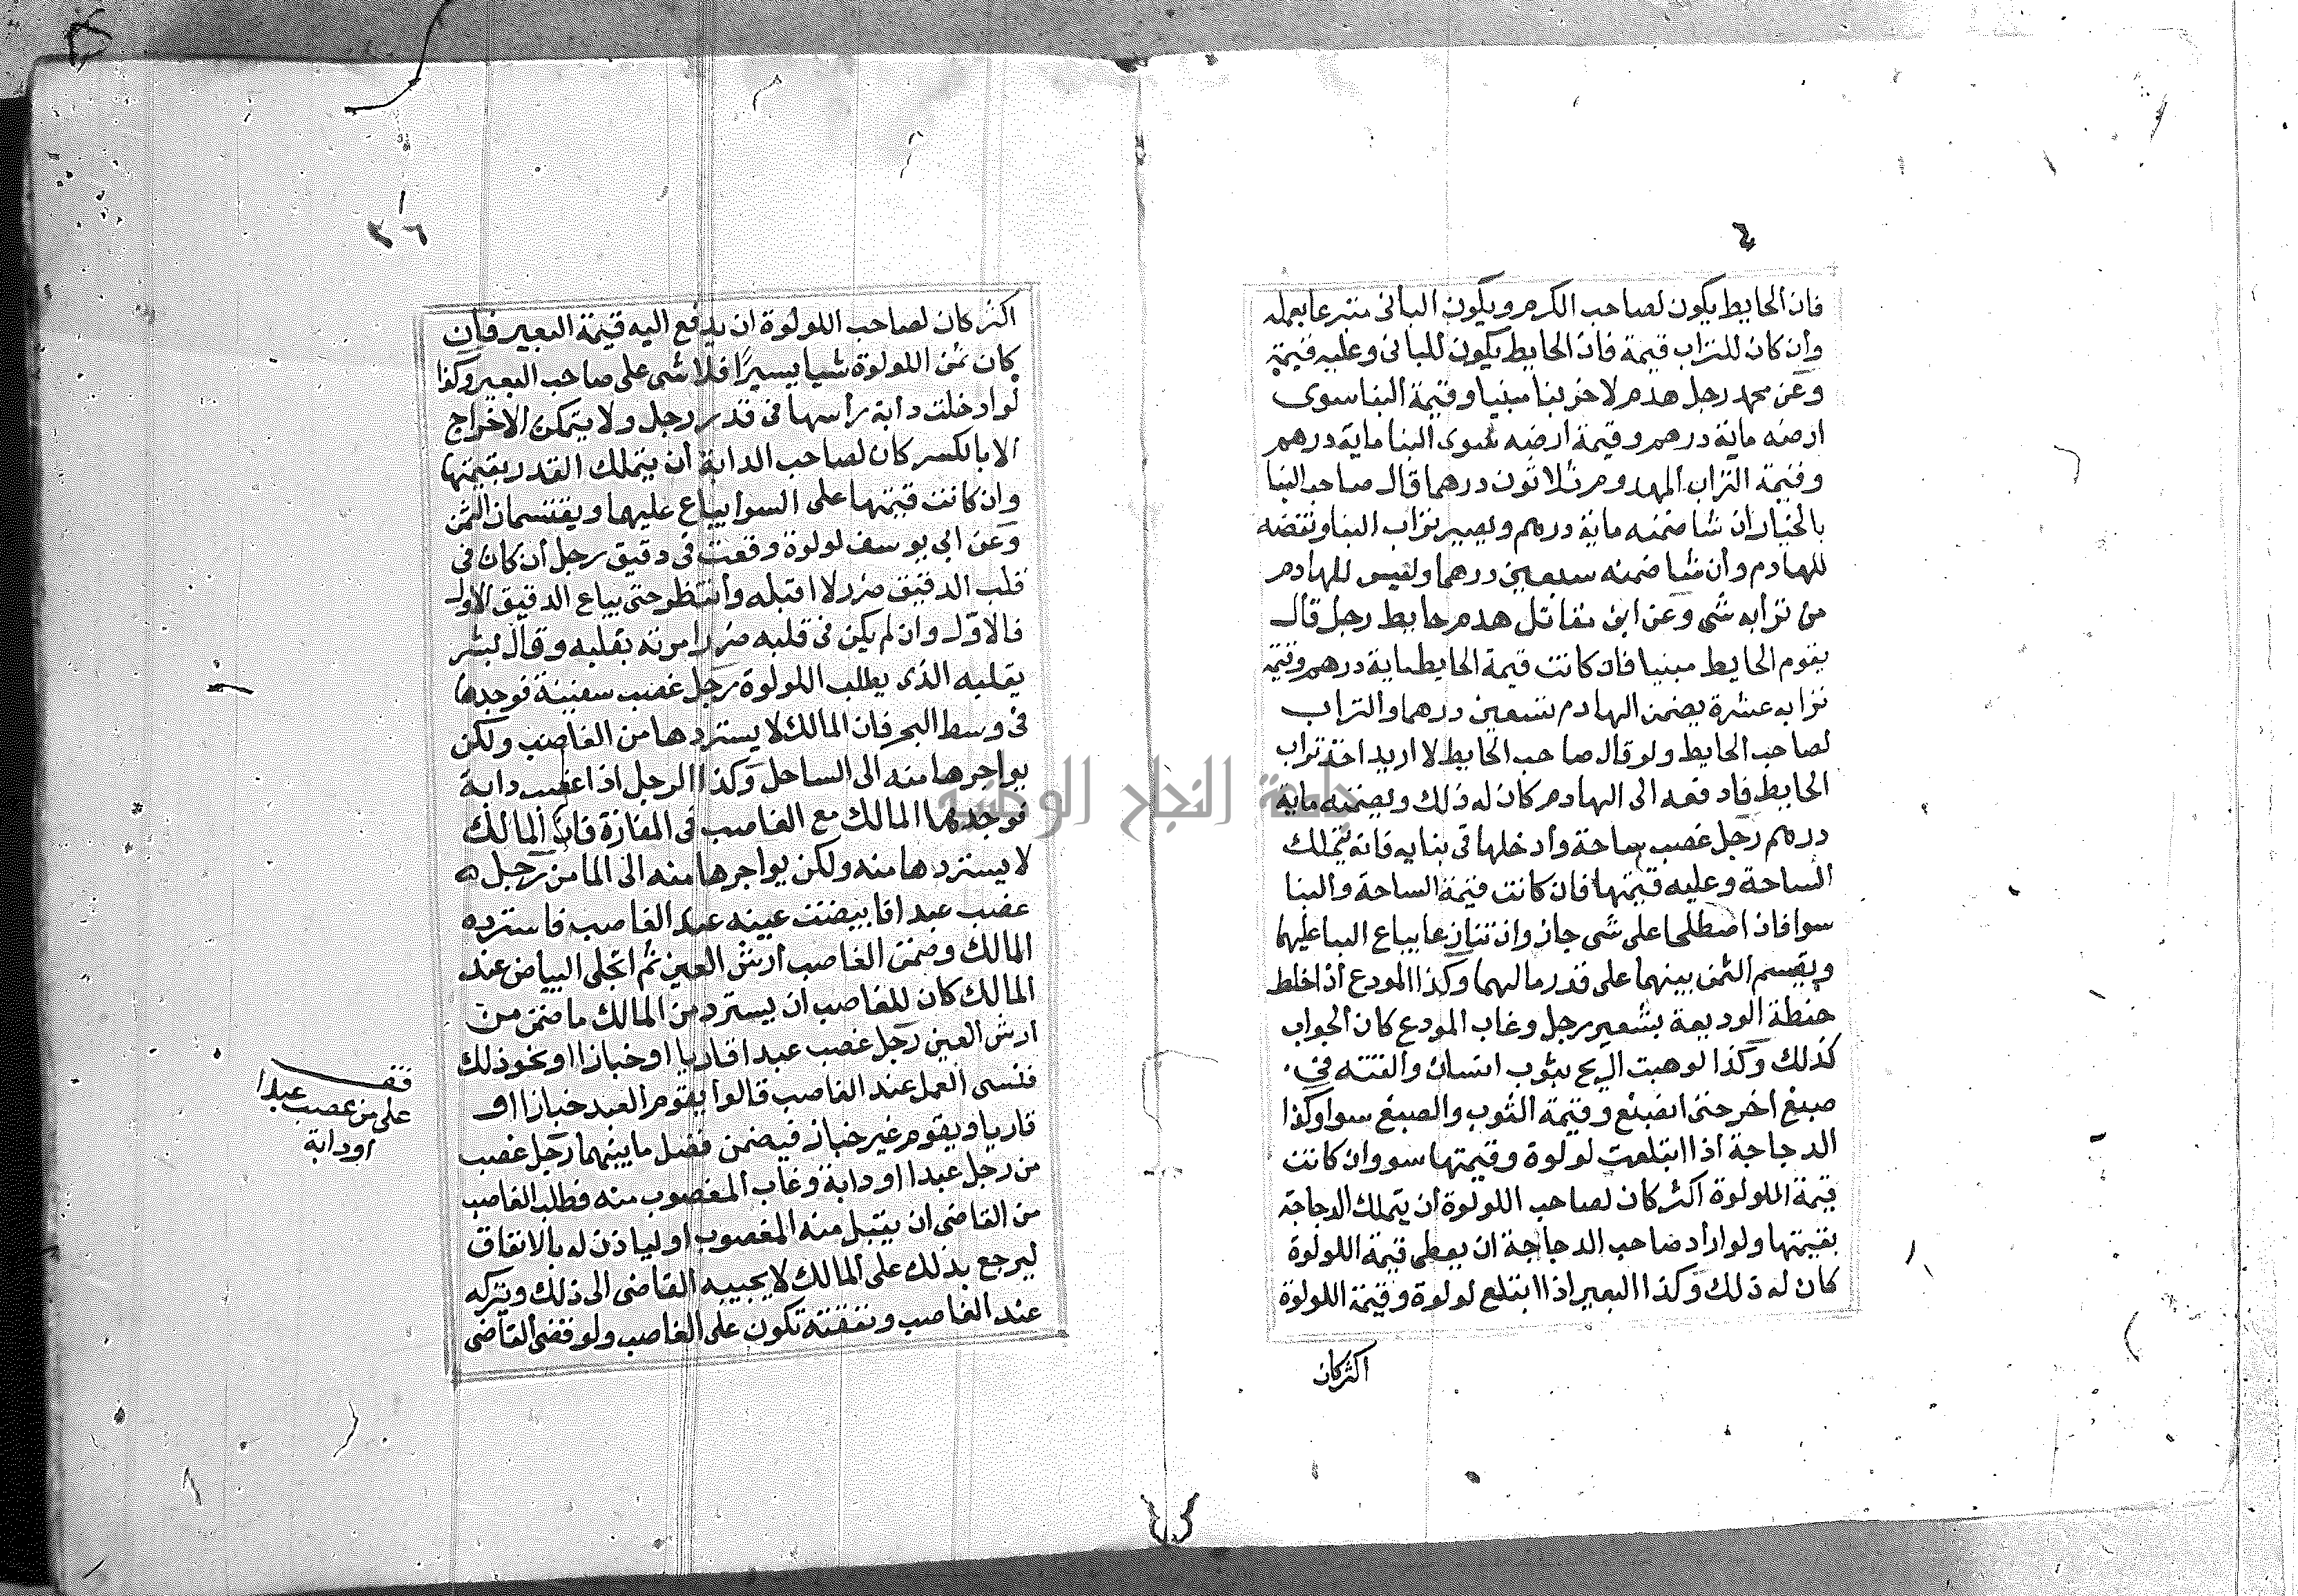 ٤
فان الحايط يكون لصاحب الكرم ويكون البانى متبرعا بعمله
وان كان للتراب قيمة فان الحايط يكون للبانى وعليه قيمته
وعن محمد رجل هدم لاخر بنا مبنيا وقيمة البنا سوى
ارضه ماية درهم وقيمة ارضه سوى البنا ماية درهم
وقيمة التراب المهدوم ثلاثون درهما قال صاحب البنا
بالخيار ان شا ضمنه ماية درهم ويصير تراب البنا ونقضه
للهادم وان شا ضمنه سبعين درهما وليس للهادم
من ترابه شى وعن ابن مقاتل هدم حايط رجل قال
يقوم الحايط مبنيا فان كانت قيمة الحايط ماية درهم وقيمة
ترابه عشرة يضمن الهادم تسعين درهما والتراب
لصاحب الحايط ولو قال صاحب الحايط لا اريد اخذ تراب
الحايط فادفعه الى الهادم كان له ذلك ويضمنه ماية
درهم رجل غصب ساحة وادخلها فى بنايه فانه يتملك
الساحة وعليه قيمتها فان كانت قيمة الساحة والبنا
سوا فان اصطلحا على شى جاز وان تنازعا يباع البنا عليهما
ويقسم الثمن بينهما على قدر مالهما وكذا المودع اذا خلط
حنطة الوديعة بشعير رجل وغاب المودع كان الجواب
كذلك وكذا لو هبت الريح بثوب انسان والقته فى
صبغ اخر حتى انصبغ وقيمة الثوب والصبغ سوا وكذا
الدجاجة اذا ابتلعت لولوة وقيمتها سو وان كانت
قيمة اللولوة اكثر كان لصاحب اللولوة ان يتملك الدجاجة
بقيمتها ولو اراد صاحب الدجاجة ان يعطى قيمة اللولوة
كان له ذلك وكذا البعير اذا ابتلع لولوة وقيمة اللولوة
اكثر كان
٣٦
اكثر كان لصاحب اللولوة ان يدفع اليه قيمة البعير فان
كان ثمن اللولوة شيا يسيرًا فلا شى على صاحب البعير وكذا
لو ادخلت دابة راسها فى قدر رجل ولا يتمكن الاخراج
الا بالكسر كان لصاحب الدابة ان يتملك القدر بقيمتها
وان كانت قيمتها على السوا يباع عليهما ويقتسمان الثمن
وعن ابى يوسف لولوة وقعت فى دقيق رجل ان كان فى
قلب الدقيق ضرر لا اقبله وانتظر حتى يباع الدقيق الاول
فالاول وان لم يكن فى قلبه ضرر امرته بقلبه وقال بشر
يقلبه الذى يطلب اللولوة رجل غصب سفينة فوجدها
فى وسط البحر فان المالك لا يستردها من الغاصب ولكن
يواجرها منه الى الساحل وكذا الرجل اذا غصب دابة
فوجدها المالك مع الغاصب فى المفازة فان المالك
لا يستردها منه ولكن يواجرها منه الى المامن رجل
غصب عبدا فابيضت عينه عند الغاصب فاسترده
المالك وضمن الغاصب ارش العين ثم انجلى البياض عند
المالك كان للغاصب ان يسترد من المالك ما ضمن من
ارش العين رجل غصب عبدا قاريا او خبازا او نحو ذلك
فنسى العمل عند الغاصب قالوا يقوم العبد خبازا او
قاريا ويقوم غير خباز فيضمن فضل ما بينهما رجل غصب
من رجل عبدا او دابة وغاب المغصوب منه فطلب الغاصب
من القاضى ان يقبل منه المغصوب او لياذن له بالانفاق
ليرجع بذلك على المالك لا يجيبه القاضى الى ذلك ويتركه
عند الغاصب ونفقته تكون على الغاصب ولو قضى القاضى
على من غصب عبدا
او دابة
جامعة النجاح الوطنية